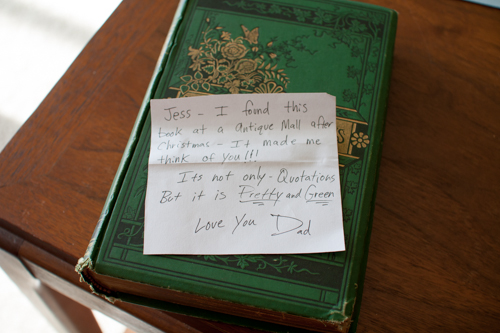 Jess - I found this
book at a Antique Mall after
Christmas - It made me
think of you!!!
Its not only - Quotations
But it is Pretty and Green
Love You Dad
S